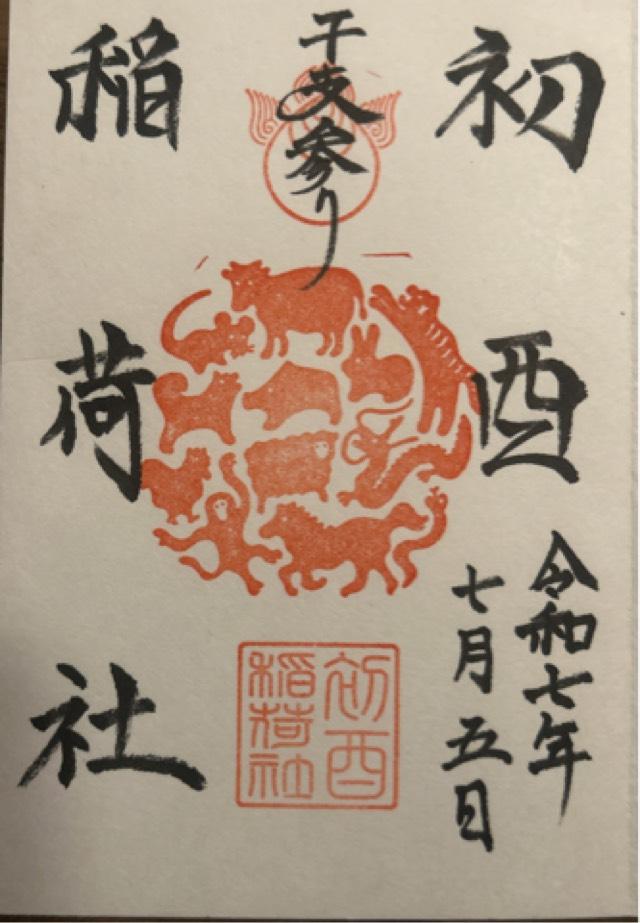 初酉
稲荷社
干支参り
令和七年
七月五日
初酉
稲荷社